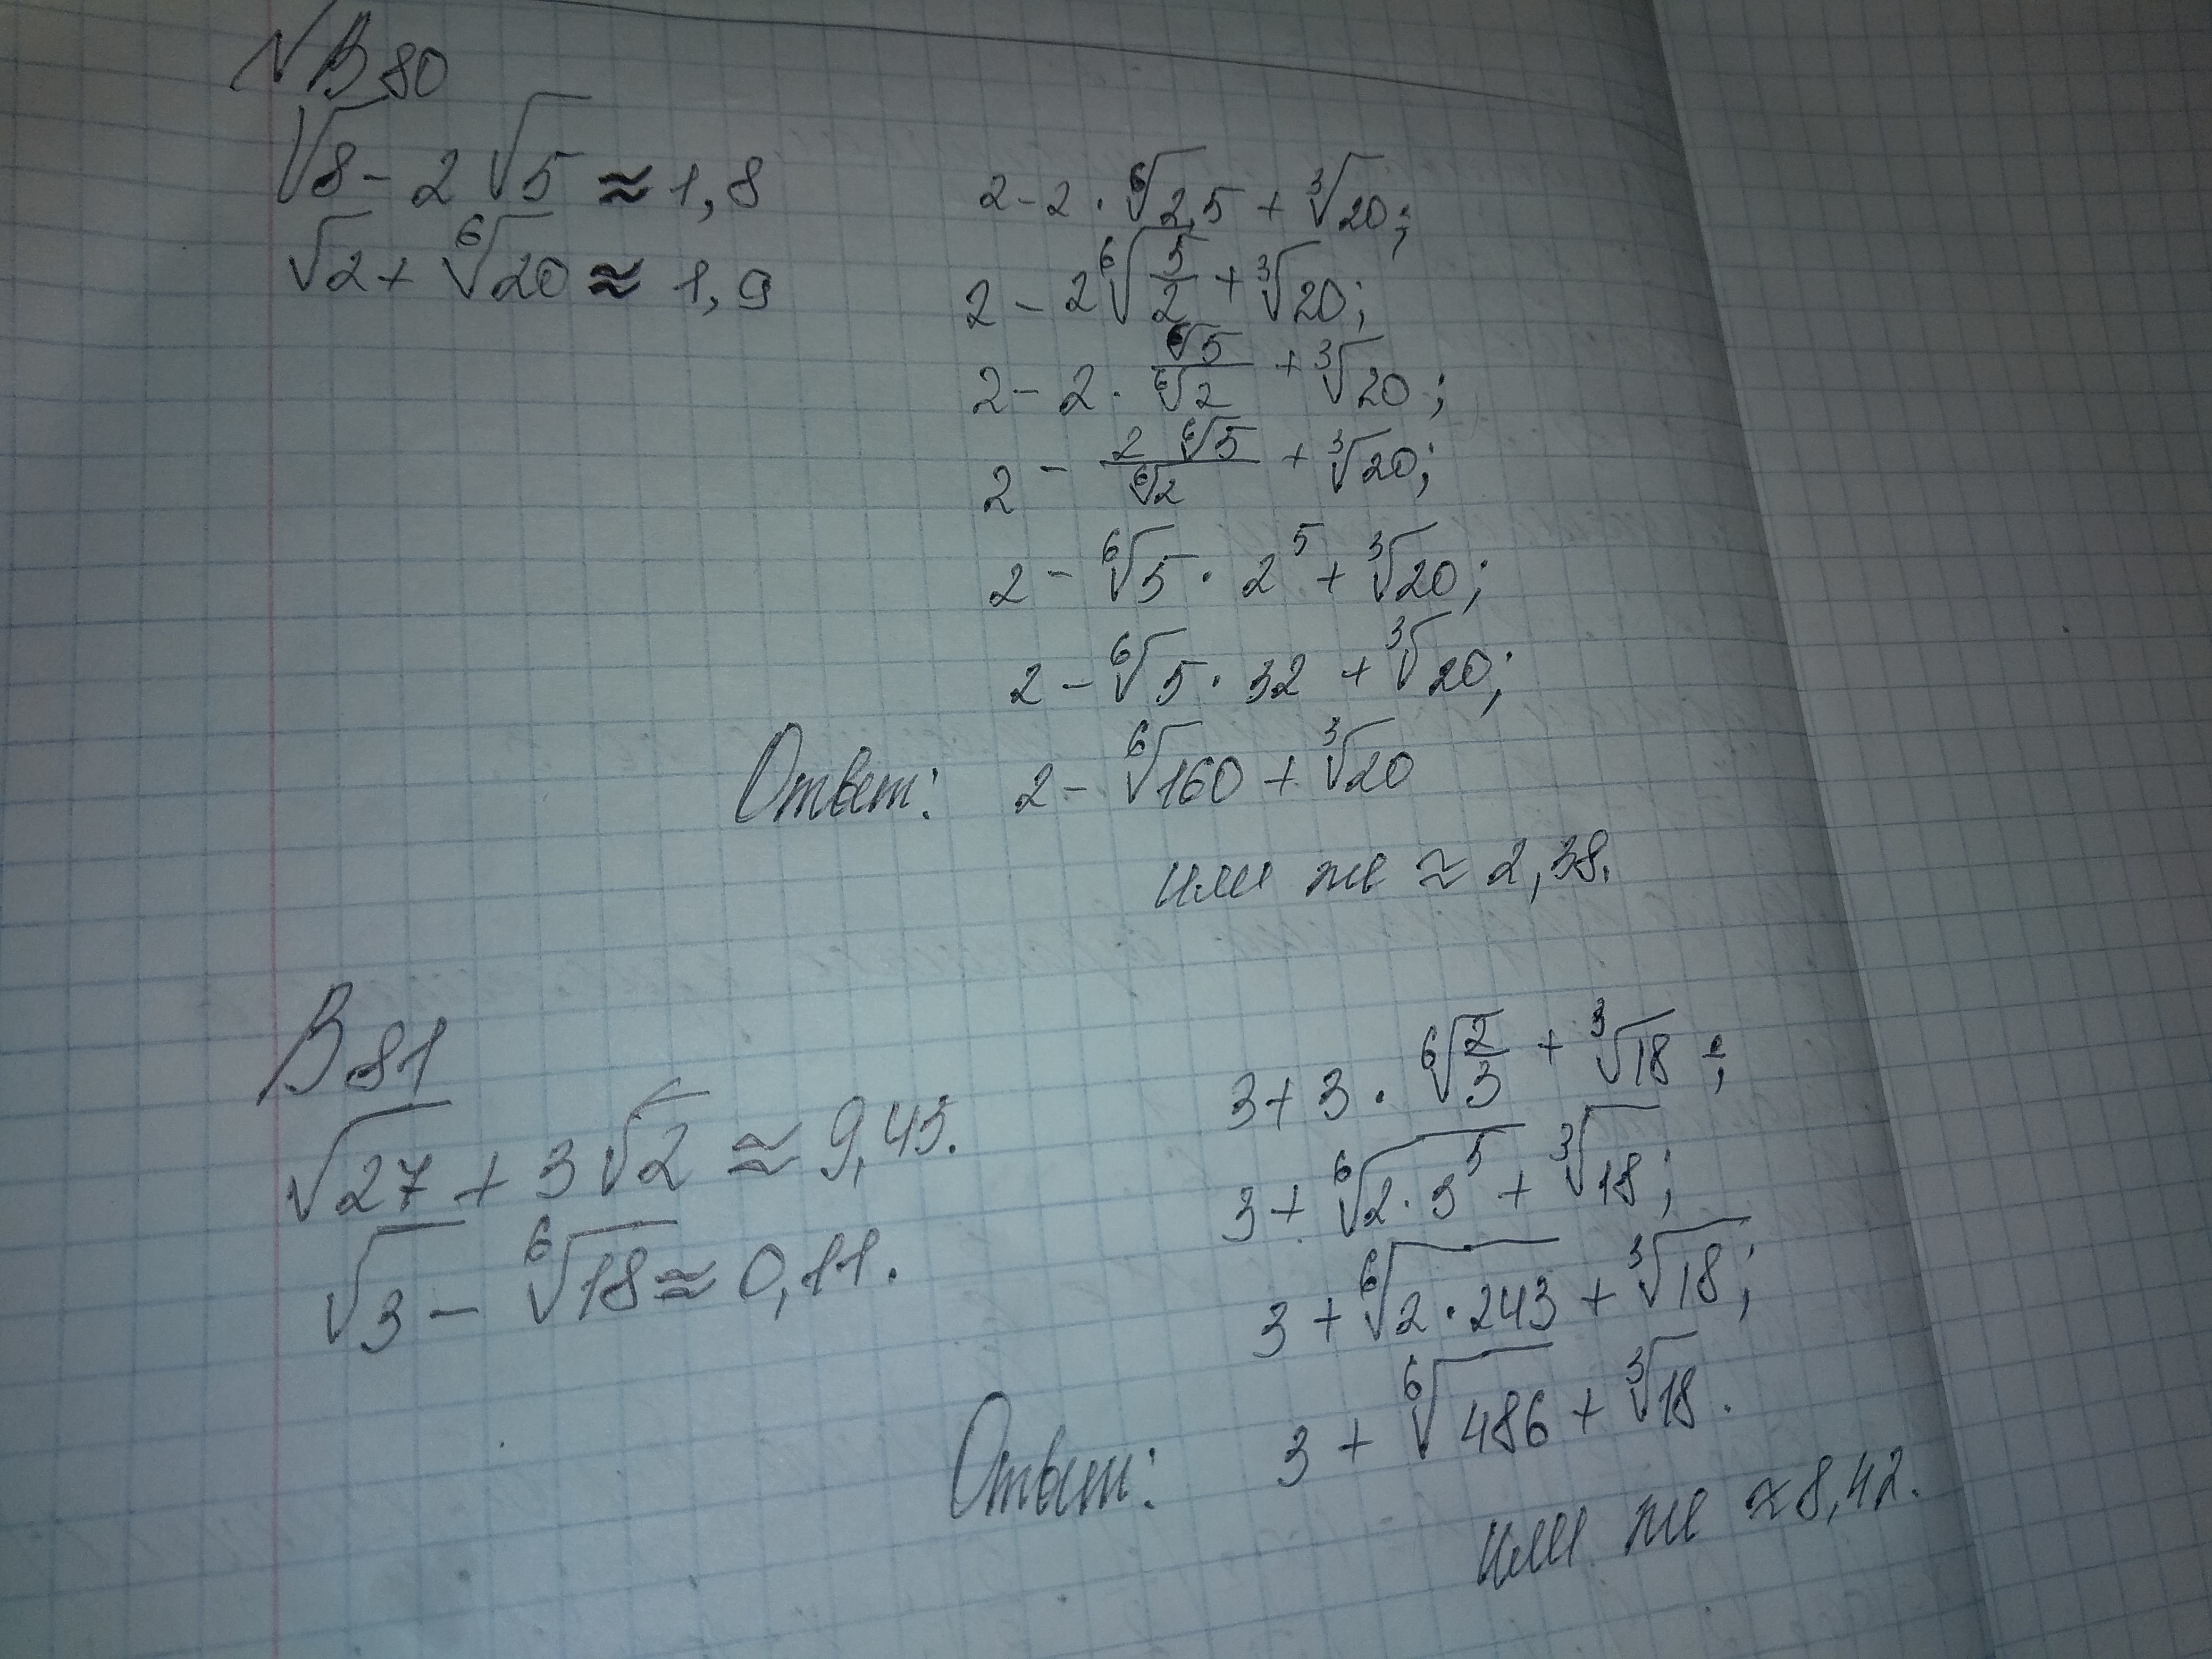 № В 80
√8 - 2√5 ≈ 1,8
√2 + ⁶√20 ≈ 1,9
2 - 2 · ⁶√2,5 + ³√20;
2 - 2 ⁶√(5/2) + ³√20;
2 - 2 · ⁶√5/⁶√2 + ³√20;
2 - 2 ⁶√5/⁶√2 + ³√20;
2 - ⁶√5 · 2⁵ + ³√20;
2 - ⁶√5 · 32 + ³√20;
Ответ: 2 - ⁶√160 + ³√20
или же ≈ 2,38.
В 81
√27 + 3√2 ≈ 9,45.
√3 - ⁶√18 ≈ 0,11.
3 + 3 · ⁶√(2/3) + ³√18;
3 + ⁶√2 · 3⁵ + ³√18;
3 + ⁶√2 · 243 + ³√18;
Ответ: 3 + ⁶√486 + ³√18.
или же ≈ 8,42.